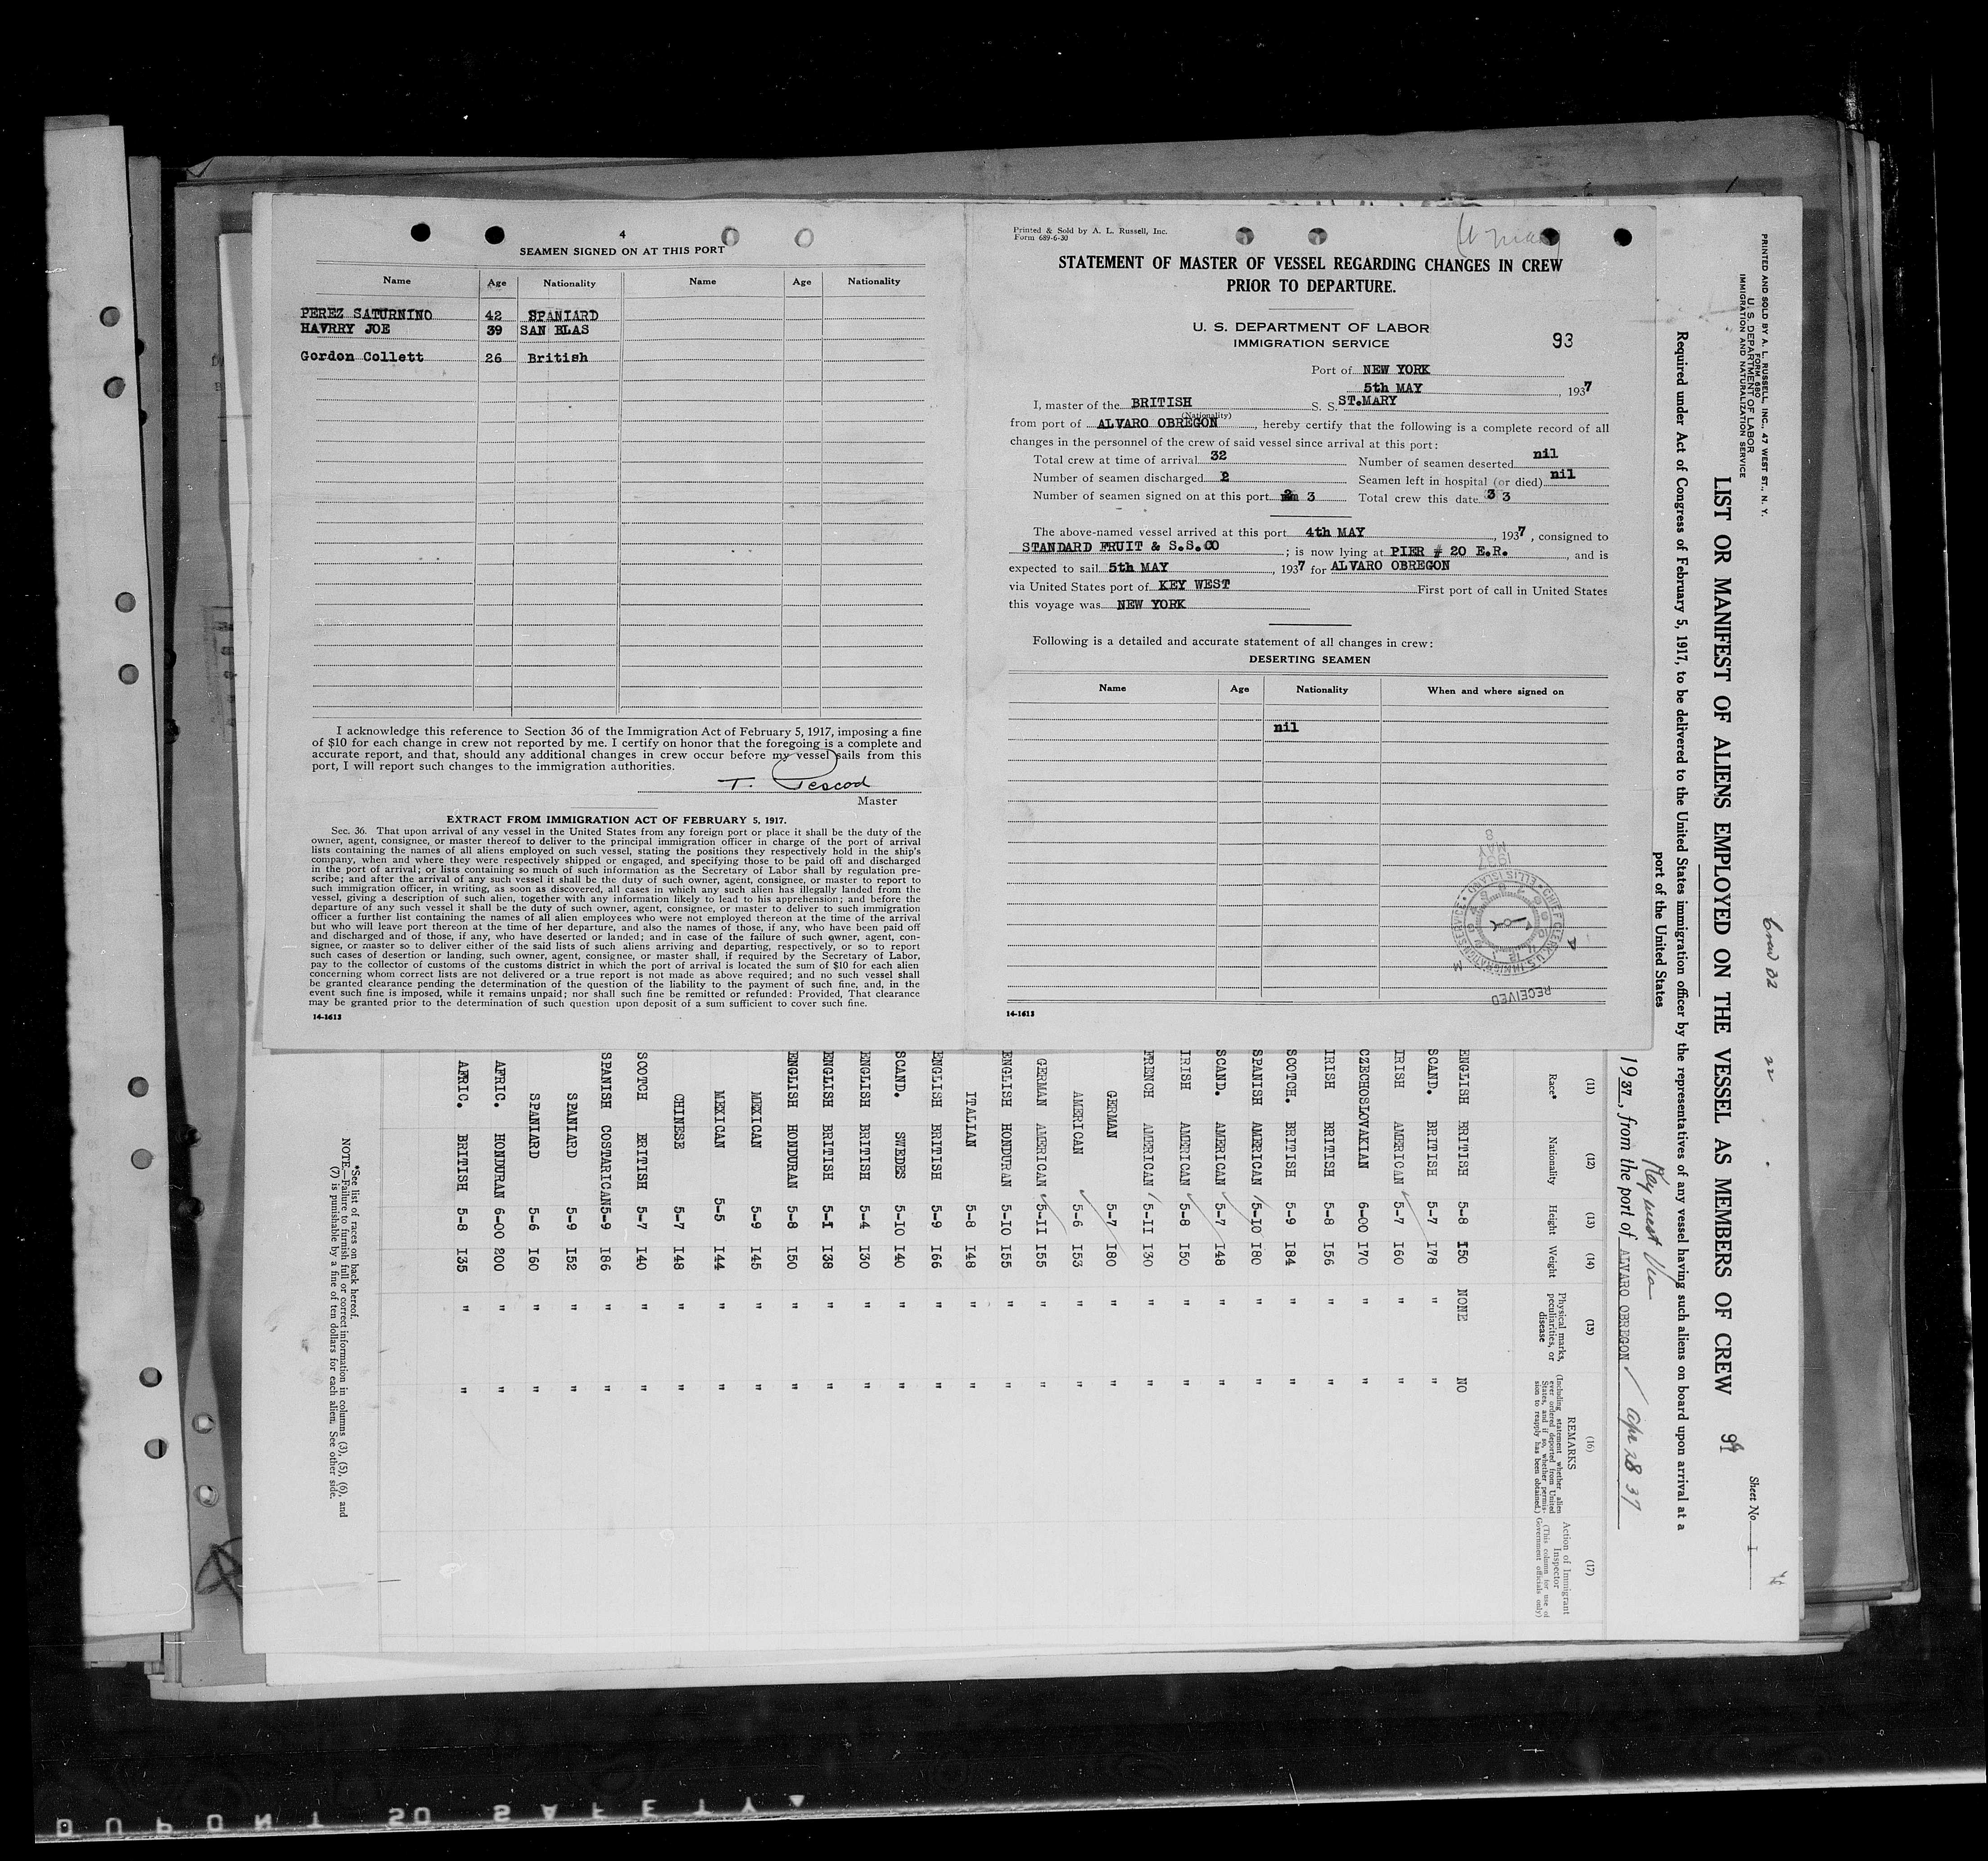 4
SEAMEN SIGNED ON AT THIS PORT
Name Age Nationality Name Age Nationality
PEREZ SATURNINO 42 SPANIARD
HAVRRY JOE 39 SAN BLAS
Gordon Collett 26 British
I acknowledge this reference to Section 36 of the Immigration Act of February 5, 1917, imposing a fine
of $10 for each change in crew not reported by me. I certify on honor that the foregoing is a complete and
accurate report, and that, should any additional changes in crew occur before my vessel sails from this
port, I will report such changes to the immigration authorities.
T. Pescod
Master
EXTRACT FROM IMMIGRATION ACT OF FEBRUARY 5, 1917.
Sec. 36. That upon arrival of any vessel in the United States from any foreign port or place it shall be the duty of the
owner, agent, consignee, or master thereof to deliver to the principal immigration officer in charge of the port of arrival
lists containing the names of all aliens employed on such vessel, stating the positions they respectively hold in the ship's
company, when and where they were respectively shipped or engaged, and specifying those to be paid off and discharged
in the port of arrival; or lists containing so much of such information as the Secretary of Labor shall by regulation pre-
scribe; and after the arrival of any such vessel it shall be the duty of such owner, agent, consignee, or master to report to
such immigration officer, in writing, as soon as discovered, all cases in which any such alien has illegally landed from the
vessel, giving a description of such alien, together with any information likely to lead to his apprehension; and before the
departure of any such vessel it shall be the duty of such owner, agent, consignee, or master to deliver to such immigration
officer a further list containing the names of all alien employees who were not employed thereon at the time of the arrival
but who will leave port thereon at the time of her departure, and also the names of those, if any, who have been paid off
and discharged and of those, if any, who have deserted or landed; and in case of the failure of such owner, agent, con-
signee, or master so to deliver either of the said lists of such aliens arriving and departing, respectively, or so to report
such cases of desertion or landing, such owner, agent, consignee, or master shall, if required by the Secretary of Labor,
pay to the collector of customs of the customs district in which the port of arrival is located the sum of $10 for each alien
concerning whom correct lists are not delivered or a true report is not made as above required; and no such vessel shall
be granted clearance pending the determination of the question of the liability to the payment of such fine, and, in the
event such fine is imposed, while it remains unpaid; nor shall such fine be remitted or refunded: Provided, That clearance
may be granted prior to the determination of such question upon deposit of a sum sufficient to cover such fine.
14-1613
Printed & Sold by A. L. Russell, Inc.
Form 689-6-30
STATEMENT OF MASTER OF VESSEL REGARDING CHANGES IN CREW
PRIOR TO DEPARTURE.
U. S. DEPARTMENT OF LABOR
IMMIGRATION SERVICE
93
Port of NEW YORK
5th MAY, 1937
I, master of the BRITISH S. S. ST.MARY
(Nationality)
from port of ALVARO OBREGON, hereby certify that the following is a complete record of all
changes in the personnel of the crew of said vessel since arrival at this port:
Total crew at time of arrival 32 Number of seamen deserted nil
Number of seamen discharged 2 Seamen left in hospital (or died) nil
Number of seamen signed on at this port 3 Total crew this date 3 3
The above-named vessel arrived at this port 4th MAY, 1937, consigned to
STANDARD FRUIT & S.S.CO; is now lying at PIER # 20 E.R., and is
expected to sail 5th MAY, 1937 for ALVARO OBREGON
via United States port of KEY WEST First port of call in United States
this voyage was NEW YORK
Following is a detailed and accurate statement of all changes in crew:
DESERTING SEAMEN
Name Age Nationality When and where signed on
nil
RECEIVED
CHIEF CLERK U.S. IMMIGRATION SERVICE
ELLIS ISLAND
1937
MAY
8
14-1613
PRINTED AND SOLD BY A. L. RUSSELL, INC., 47 WEST ST., N. Y.
FORM 680
U. S. DEPARTMENT OF LABOR
IMMIGRATION AND NATURALIZATION SERVICE
Crew 32 22
Sheet No. 1
LIST OR MANIFEST OF ALIENS EMPLOYED ON THE VESSEL AS MEMBERS OF CREW
Required under Act of Congress of February 5, 1917, to be delivered to the United States immigration officer by the representatives of any vessel having such aliens on board upon arrival at a
port of the United States
Key West Via
1937, from the port of ALVARO OBREGON Apr 28 37
(11) (12) (13) (14) (15) (16) (17)
Race* Nationality Height Weight Physical marks, peculiarities, or disease REMARKS (Including statement whether alien ever ordered deported from United States, and if so, whether permission to reapply has been obtained.) Action of Immigrant Inspector (This column for use of Government officials only)
ENGLISH BRITISH 5-8 150 NONE NO
SCAND. BRITISH 5-7 178 " "
IRISH AMERICAN 5-7 160 " "
CZECHOSLOVAKIAN 6-00 170 " "
IRISH BRITISH 5-8 156 " "
SCOTCH. BRITISH 5-9 184 " "
SPANISH AMERICAN 5-10 180 " "
SCAND. AMERICAN 5-7 148 " "
IRISH AMERICAN 5-8 150 " "
FRENCH AMERICAN 5-11 130 " "
GERMAN 5-7 180 " "
AMERICAN 5-6 153 " "
GERMAN AMERICAN 5-11 155 " "
ENGLISH HONDURAN 5-10 155 " "
ITALIAN 5-8 148 " "
ENGLISH BRITISH 5-9 166 " "
SCAND. SWEDES 5-10 140 " "
ENGLISH BRITISH 5-4 130 " "
ENGLISH BRITISH 5-1 138 " "
ENGLISH HONDURAN 5-8 150 " "
MEXICAN 5-9 145 " "
MEXICAN 5-5 144 " "
CHINESE 5-7 148 " "
SCOTCH BRITISH 5-7 140 " "
SPANISH COSTARICAN 5-9 186 " "
SPANIARD 5-9 152 " "
SPANIARD 5-6 160 " "
AFRIC. HONDURAN 6-00 200 " "
AFRIC. BRITISH 5-8 135 " "
*See list of races on back hereof.
NOTE—Failure to furnish full or correct information in columns (3), (5), (6), and
(7) is punishable by a fine of ten dollars for each alien. See other side.
DUPONT SO SAFETY